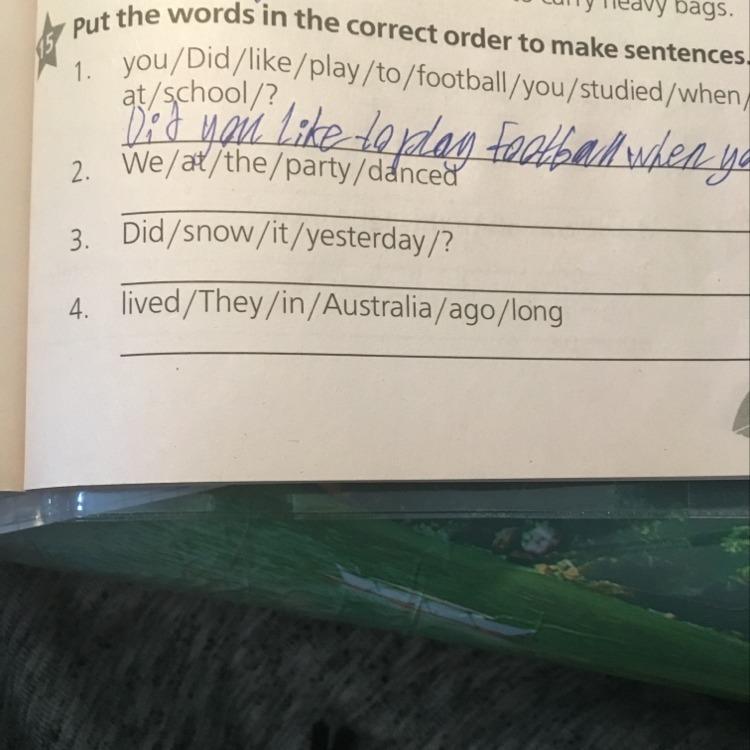 carry heavy bags.
15 Put the words in the correct order to make sentences.
1. you/Did/like/play/to/football/you/studied/when/
at/school/?
Did you like to play football when yo
2. We/at/the/party/danced
3. Did/snow/it/yesterday/?
4. lived/They/in/Australia/ago/long